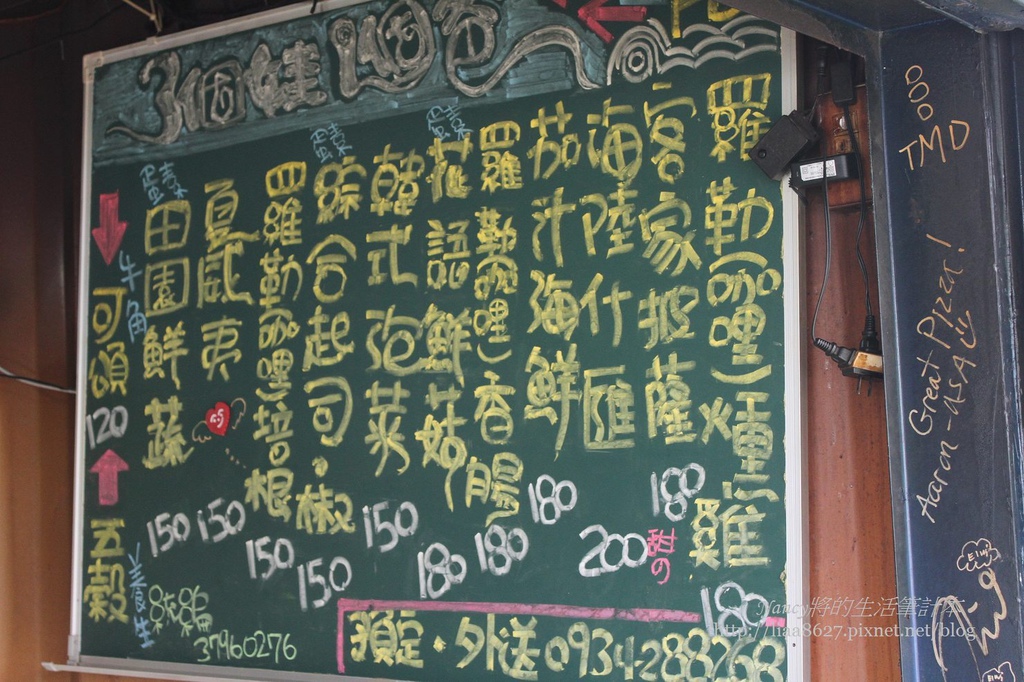 3個娃娃 四色
羅勒(咖哩)燻雞 180
客家披薩 180
海陸什匯 200 甜の
茄汁海鮮 180
羅勒(咖哩)香腸 180
蛋素 蘿語鮮菇 180
韓式泡菜 150
蛋素 綜合起司·椒 150
羅維勒咖哩培根 150
夏威夷 150
蛋素 田園鮮蔬 150
牛角
可頌
120
五穀
37960276
預定·外送0934-288268
TMD
Great Pizza!
Aaron-USA
Nancy將的生活筆記本
http://haa8627.pixnet.net/blog